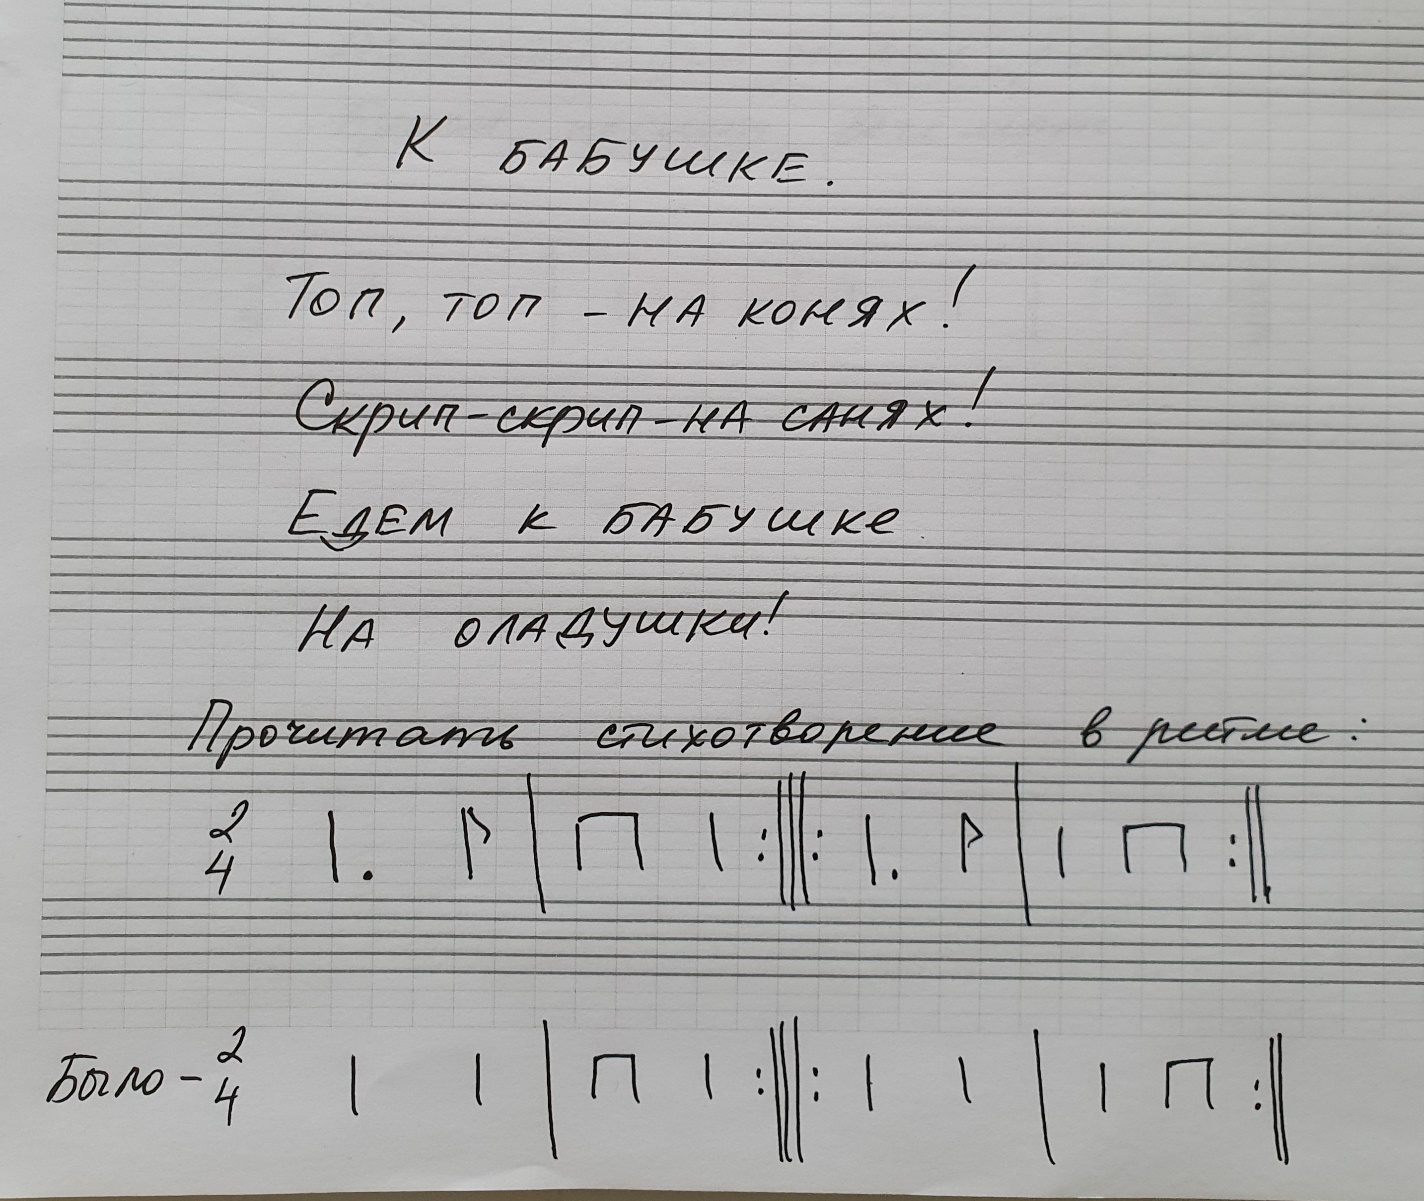 К БАБУШКЕ.
Топ, топ - на конях!
Скрип-скрип-на санях!
Едем к бабушке
На оладушки!
Прочитать стихотворение в ритме:
2
4
Было - 2
4